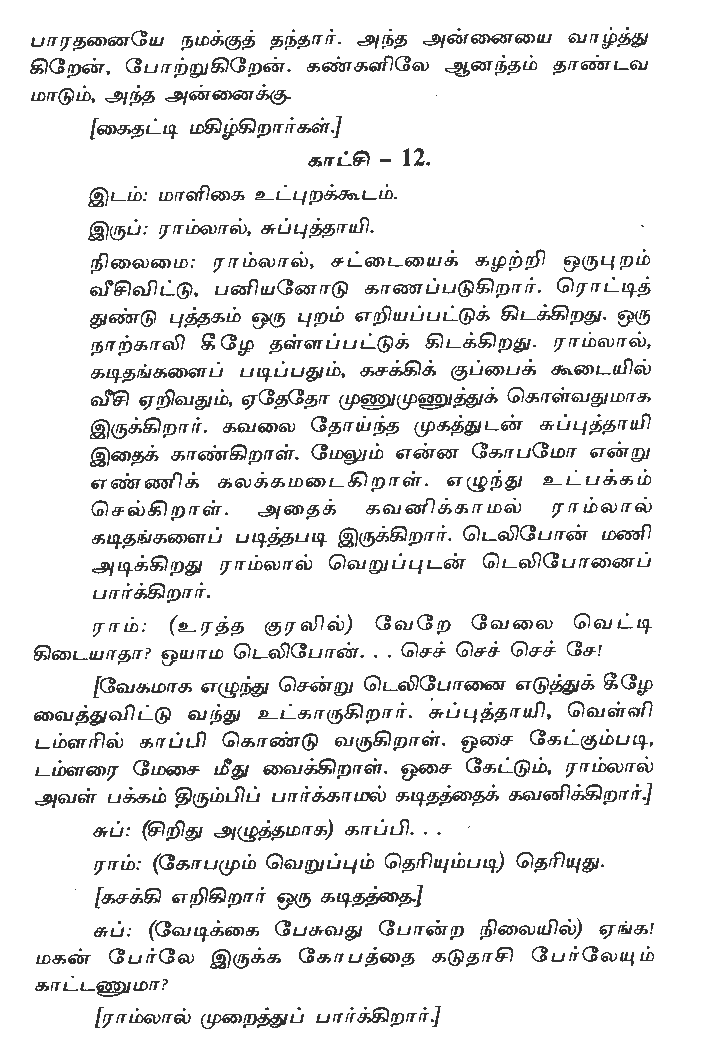 பாரதனையே நமக்குத் தந்தார். அந்த அன்னையை வாழ்த்து
கிறேன், போற்றுகிறேன். கண்களிலே ஆனந்தம் தாண்டவ
மாடும், அந்த அன்னைக்கு.
[கைதட்டி மகிழ்கிறார்கள்.]
காட்சி – 12.
இடம்: மாளிகை உட்புறக்கூடம்.
இருப்: ராம்லால், சுப்புத்தாயி.
நிலைமை: ராம்லால், சட்டையைக் கழற்றி ஒருபுறம்
வீசிவிட்டு, பனியனோடு காணப்படுகிறார். ரொட்டித்
துண்டு புத்தகம் ஒரு புறம் எறியப்பட்டுக் கிடக்கிறது. ஒரு
நாற்காலி கீழே தள்ளப்பட்டுக் கிடக்கிறது. ராம்லால்,
கடிதங்களைப் படிப்பதும், கசக்கிக் குப்பைக் கூடையில்
வீசி ஏறிவதும், ஏதேதோ முணுமுணுத்துக் கொள்வதுமாக
இருக்கிறார். கவலை தோய்ந்த முகத்துடன் சுப்புத்தாயி
இதைக் காண்கிறாள். மேலும் என்ன கோபமோ என்று
எண்ணிக் கலக்கமடைகிறாள். எழுந்து உட்பக்கம்
செல்கிறாள். அதைக் கவனிக்காமல் ராம்லால்
கடிதங்களைப் படித்தபடி இருக்கிறார். டெலிபோன் மணி
அடிக்கிறது ராம்லால் வெறுப்புடன் டெலிபோனைப்
பார்க்கிறார்.
ராம்: (உரத்த குரலில்) வேறே வேலை வெட்டி
கிடையாதா? ஒயாம டெலிபோன். . . செச் செச் செச் சே!
[வேகமாக எழுந்து சென்று டெலிபோணை எடுத்துக் கீழே
வைத்துவிட்டு வந்து உட்காருகிறார். சுப்புத்தாயி, வெள்ளி
டம்ளரில் காப்பி கொண்டு வருகிறாள். ஒசை கேட்கும்படி,
டம்ளரை மேசை மீது வைக்கிறாள். ஒசை கேட்டும், ராம்லால்
அவள் பக்கம் திரும்பிப் பார்க்காமல் கடிதத்தைக் கவனிக்கிறார்.]
சுப்: (சிறிது அழுத்தமாக) காப்பி. . .
ராம்: (கோபமும் வெறுப்பும் தெரியும்படி) தெரியுது.
[கசக்கி எறிகிறார் ஒரு கடிதத்தை.]
சுப்: (வேடிக்கை பேசுவது போன்ற நிலையில்) ஏங்க!
மகன் பேர்லே இருக்க கோபத்தை கடுதாசி பேர்லேயும்
காட்டணுமா?
[ராம்லால் முறைத்துப் பார்க்கிறார்.]